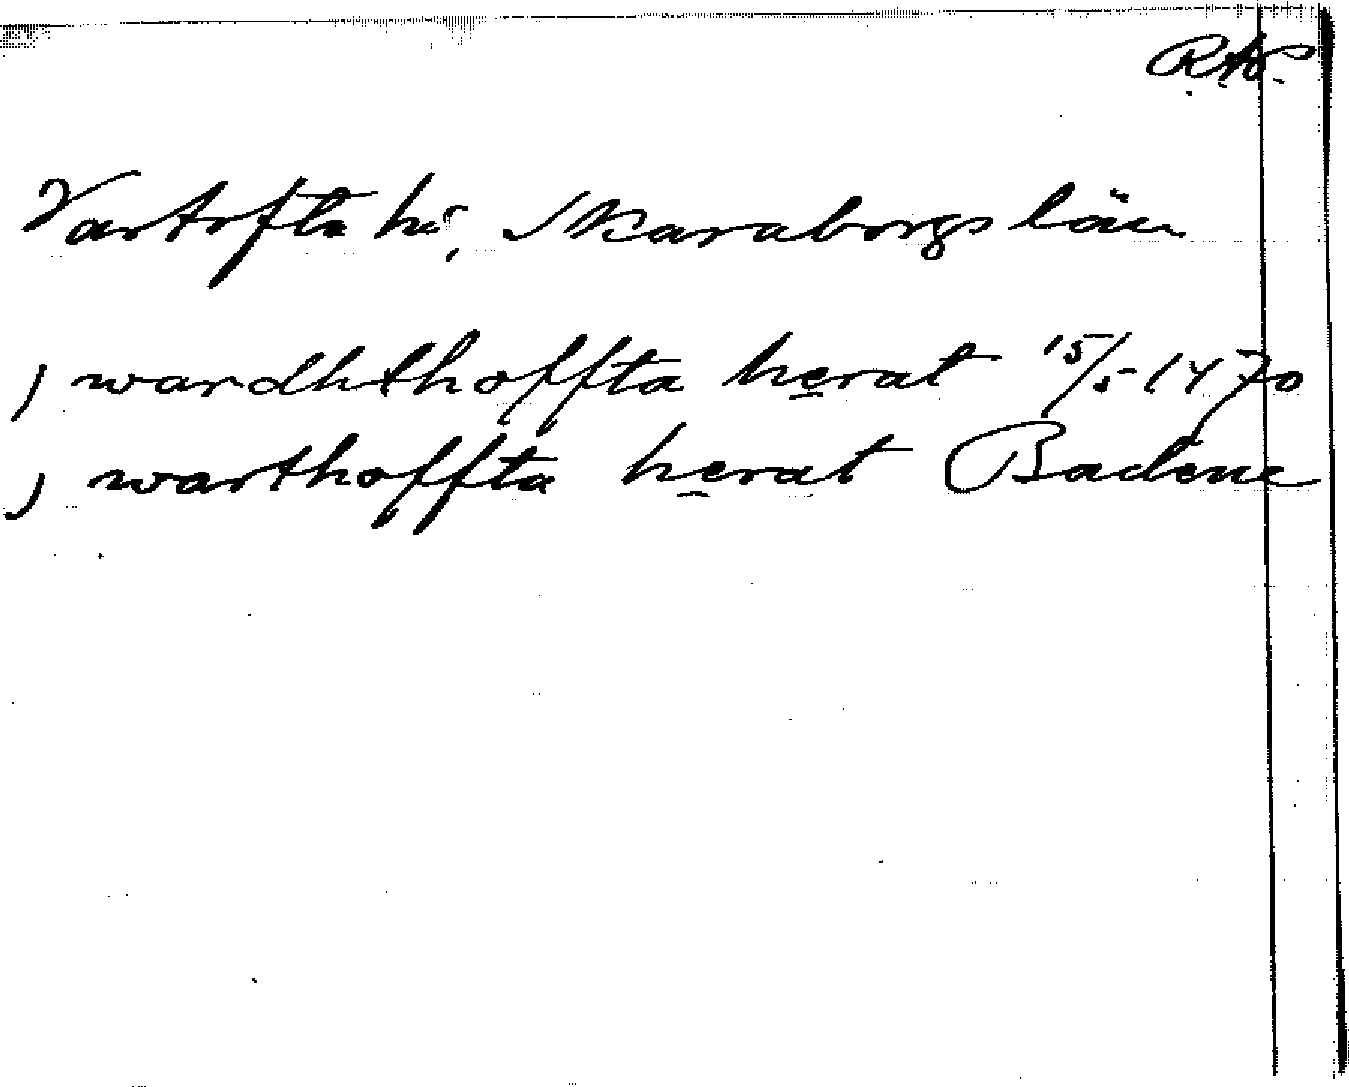 RAP.
Vartofta hd, Skaraborgs län
) wardhthoffta herat 15/5 1470
) warthoffta herat Badene